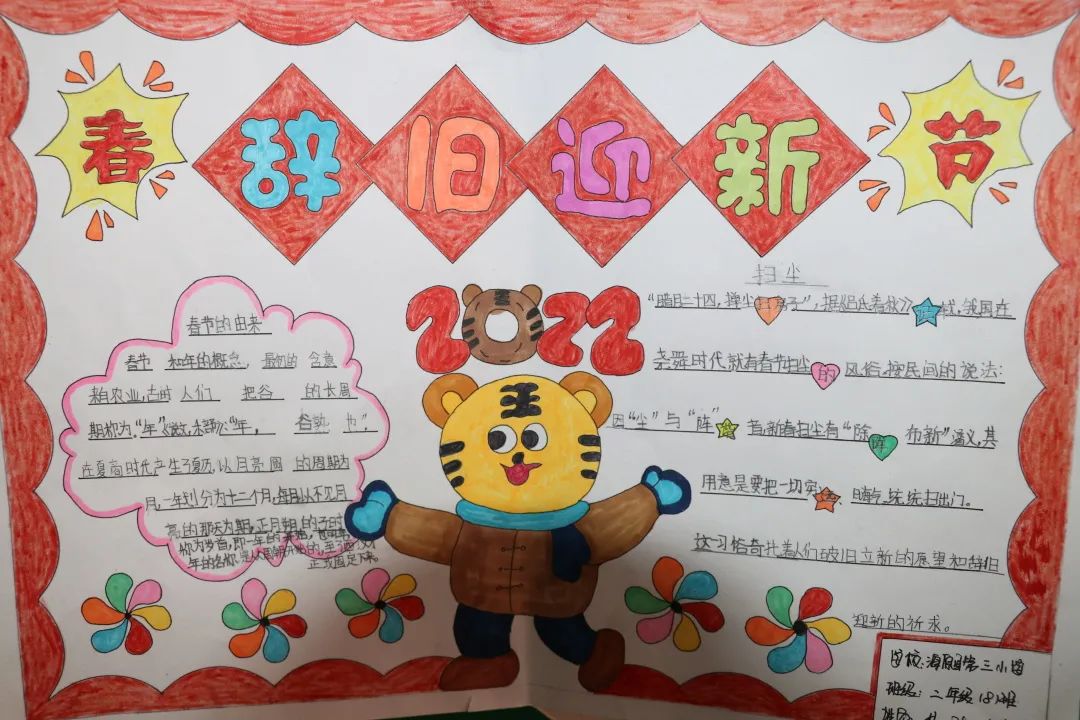 春 辞旧迎新 节
2022
春节的由来
春节 和年的概念，最初的 含意
来自农业，古时 人们 把谷 的长周
期称为“年”《说文，禾部》“年， 谷熟 也”，
在夏商时代产生了夏历，以月亮圆 的周期为
月，一年划分为十二个月，每月以不见月
亮的那天为朔，正月朔日的子时
年的名称是从周朝开始的，
正式固定下来
扫尘
“腊月二十四，掸尘扫房子”，据《吕氏春秋》记载，我国在
尧舜时代就有春节扫尘的风俗，按民间的说法：
因“尘”与“陈” 音，新春扫尘有“除陈布新”涵义，其
用意是要把一切 晦气统统扫出门。
这习俗寄托着人们破旧立新的愿望和辞旧
迎新的祈求。
学校： 第三小学
班级：二年级（8）班
姓名：